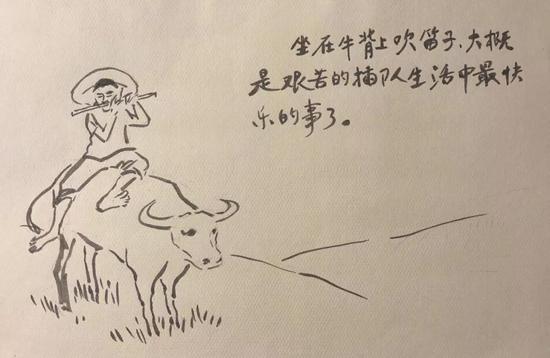 坐在牛背上吹笛子、大概
是艰苦的插队生活中最快
乐的事了。